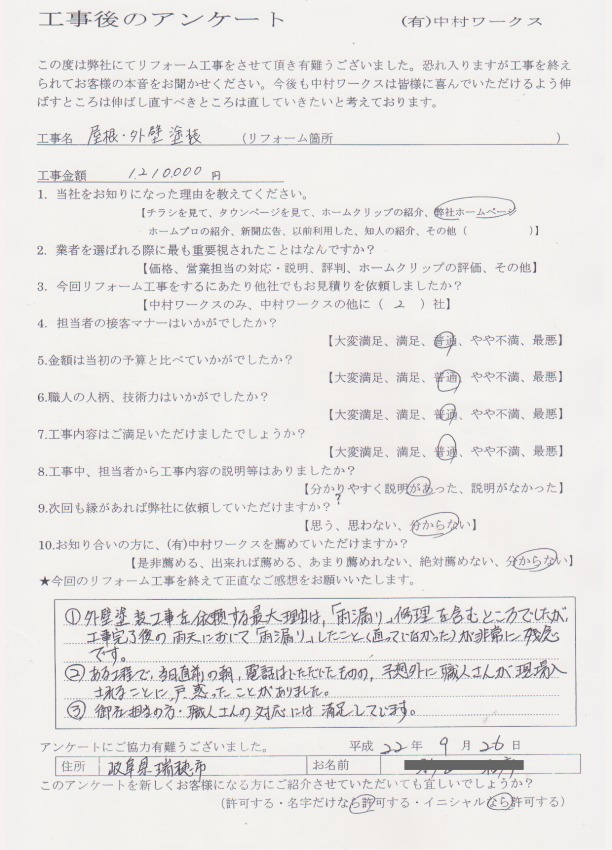 工事後のアンケート (有)中村ワークス
この度は弊社にてリフォーム工事をさせて頂き有難うございました。恐れ入りますが工事を終え
られてお客様の本音をお聞かせください。今後も中村ワークスは皆様に喜んでいただけるよう伸
ばすところは伸ばし直すべきところは直していきたいと考えております。
工事名 屋根・外壁塗装 (リフォーム箇所 )
工事金額 1,210,000 円
1. 当社をお知りになった理由を教えてください。
【チラシを見て、タウンページを見て、ホームクリップの紹介、弊社ホームページ
ホームプロの紹介、新聞広告、以前利用した、知人の紹介、その他( )】
2. 業者を選ばれる際に最も重要視されたことはなんですか?
【価格、営業担当の対応・説明、評判、ホームクリップの評価、その他】
3. 今回リフォーム工事をするにあたり他社でもお見積りを依頼しましたか?
【中村ワークスのみ、中村ワークスの他に( 2 )社】
4. 担当者の接客マナーはいかがでしたか?
【大変満足、満足、普通、やや不満、最悪】
5.金額は当初の予算と比べていかがでしたか?
【大変満足、満足、普通、やや不満、最悪】
6.職人の人柄、技術力はいかがでしたか?
【大変満足、満足、普通、やや不満、最悪】
7.工事内容はご満足いただけましたでしょうか?
【大変満足、満足、普通、やや不満、最悪】
8.工事中、担当者から工事内容の説明等はありましたか?
【分かりやすく説明があった、説明がなかった】
9.次回も縁があれば弊社に依頼していただけますか?
?
【思う、思わない、分からない】
10.お知り合いの方に、(有)中村ワークスを薦めていただけますか?
【是非薦める、出来れば薦める、あまり薦めれない、絶対薦めない、分からない】
★今回のリフォーム工事を終えて正直なご感想をお願いいたします。
① 外壁塗装工事を依頼する最大理由は、「雨漏り」修理を含むところでしたが、
工事完了後の雨天において「雨漏り」したこと(直っていなかった)が非常に残念
です。
② ある工程で、当日直前の朝、電話はいただいたものの、予想外に職人さんが現場入
されることに戸惑ったことがありました。
③ 御社担当の方・職人さんの対応には満足しています。
アンケートにご協力有難うございました。 平成 22 年 9 月 26 日
住所 岐阜県瑞穂市 お名前
このアンケートを新しくお客様になる方にご紹介させていただいても宜しいでしょうか?
(許可する・名字だけなら許可する・イニシャルなら許可する)